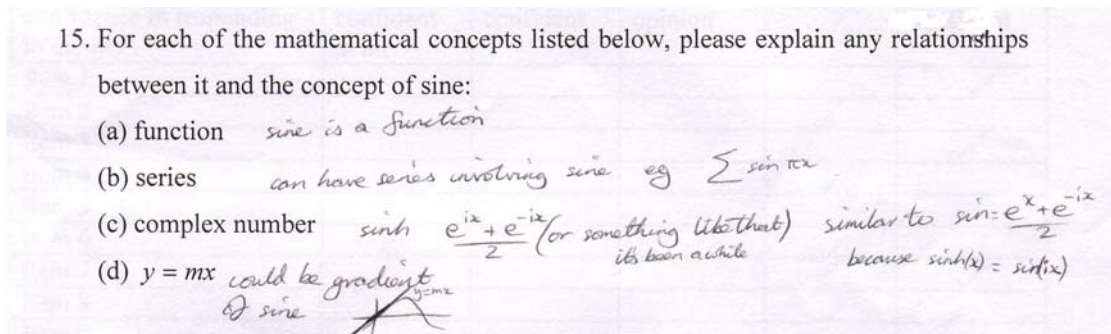 15. For each of the mathematical concepts listed below, please explain any relationships
between it and the concept of sine:
(a) function sine is a function
(b) series can have series involving sine eg ∑ sin πx
(c) complex number sinh (e^ix + e^-ix)/2 (or something like that) similar to sin = (e^x + e^-ix)/2
it's been awhile because sinh(x) = sin(ix)
(d) y = mx could be gradient
of sine y=mx